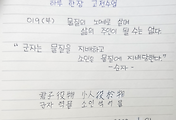 하루 한장 고전수업
019 (부) 물질의 노예로 살며
삶의 주인이 될 수는 없다
"군자는 물질을 지배하고
소인은 물질에 지배당한다."
- 순자 -
君子役物 小人役於物
군자역물 소인역어물